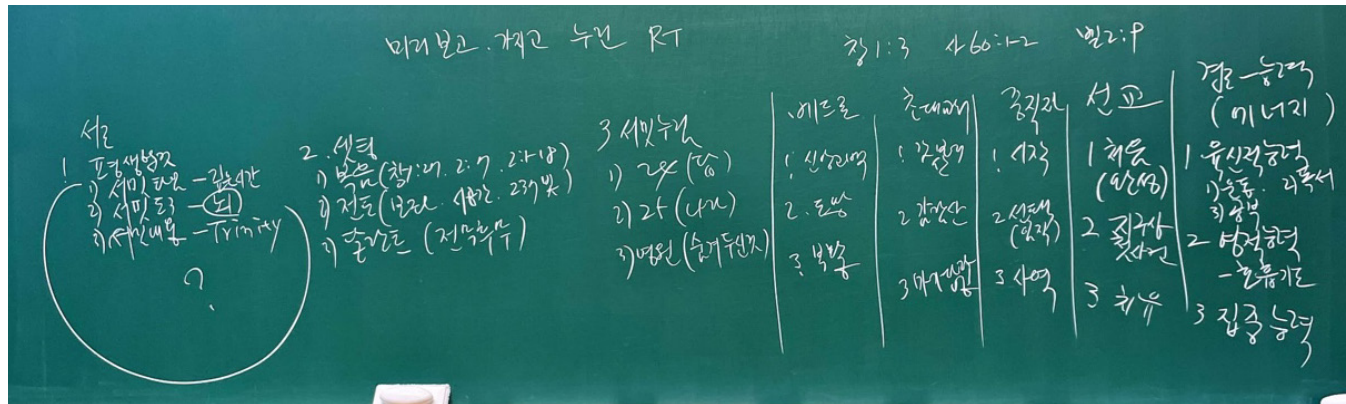 미리보고 . 가지고 누린 RT
창1:3 사60:1-2 빌2:9
서론
1. 평생발판
1) 서밋타임 - 깊은시간
2) 서밋 - 뇌
3) 서밋내용 - Trinity
?
2. 세팅
1) 복음 (창1:27. 2:7. 2:1-18)
2) 전도 (보좌. 시공간. 237빛)
3) 달란트 (전무후무)
3 서밋누림
1) 24 (답)
2) 25 (나라)
3) 영원 (숨겨두신것)
베드로
1. 신앙고백
2. 도망
3. 복음
초대교회
1. 갈보리
2 감람산
3 마가다락방
중직자
1. 시작
2. 선택 (임직)
3 사역
선교
1 처음 (안성)
2 최우상 첫사건
3 치유
결론 - 능력 (에너지)
1 육신적능력
1) 운동. 2) 독서
3) 공부
2 영적능력
- 호흡기도
3 집중능력